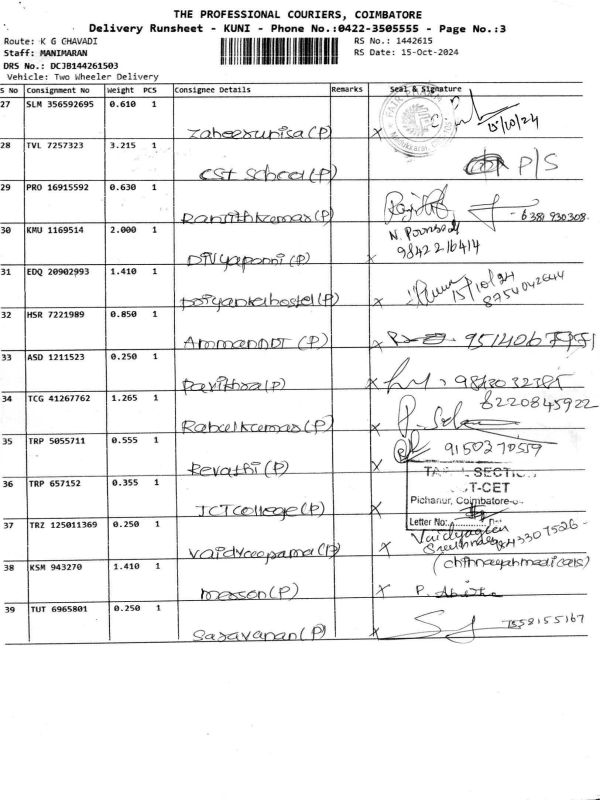 THE PROFESSIONAL COURIERS, COIMBATORE
Delivery Runsheet - KUNI - Phone No.:0422-3505555 - Page No.:3
Route: K G CHAVADI
RS No.: 1442615
Staff: MANIMARAN
RS Date: 15-Oct-2024
DRS No.: DCJB144261503
Vehicle: Two Wheeler Delivery
S No Consignment No Weight PCS Consignee Details Remarks Seal & Signature
27 SLM 356592695 0.610 1
Zaheerunisa (P) x 15/10/24
28 TVL 7257323 3.215 1
CSI School (P) P/S
29 PRO 16915592 0.630 1
Ranjithkumar (P)
30 KMU 1169514 2.000 1 N. Ponnsedy
Divyaponni (P) x 9842216414
31 EDQ 20902993 1.410 1
hostel (P) x 15/10/24 8754042644
32 HSR 7221989 0.850 1
Amman DDT (P) x
33 ASD 1211523 0.250 1
Pavithra (P) x
34 TCG 41267762 1.265 1 6220845922
Rahulkumar (P) x
35 TRP 5055711 0.555 1 9150370559
Revathi (P) x
36 TRP 657152 0.355 1 SECTI
T-CET
Pichanur, Coimbatore
JCT College (P)
Letter No:
37 TRZ 125011369 0.250 1
(P) x
38 KSM 943270 1.410 1
messon (P) x P.
39 TUT 6965801 0.250 1
Saravanan (P) x 7558155167